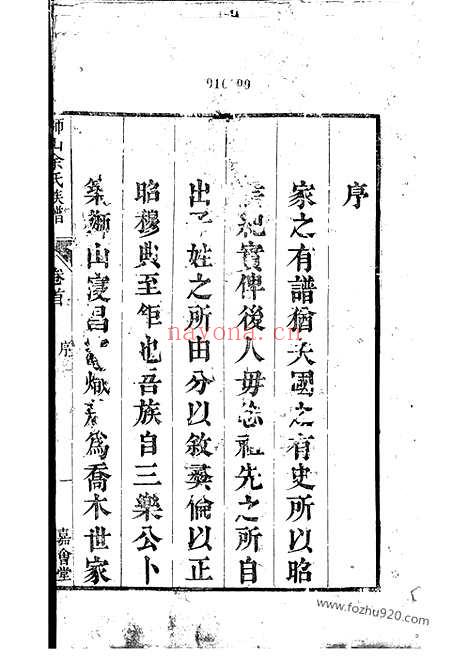 910199
序
家之有譜猶夫國之有史所以昭
紀實俾後人毋忘祖先之所自
出子姓之所由分以敘彝倫以正
昭穆典至鉅也吾族自三樂公卜
築獅山寖昌熾為喬木世家
獅山余氏族譜
卷首
序
一
嘉會堂
nayona.cn
www.fozhu920.com